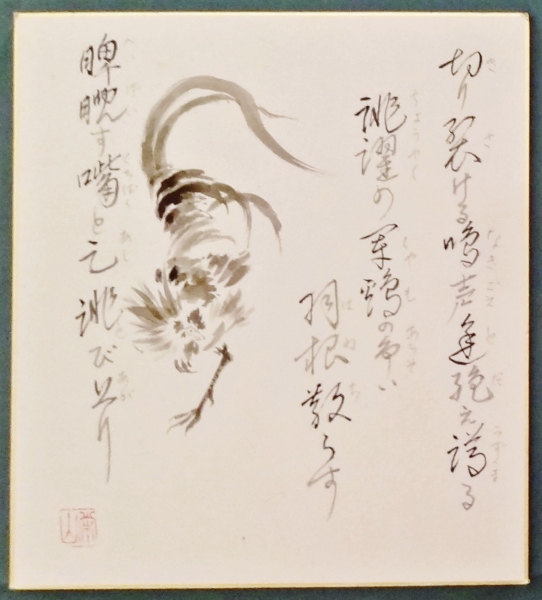 切り裂ける鳴声途絶え蹲る
跳躍の軍鶏の争い
羽根散らす
睥睨す嘴と足跳び上り